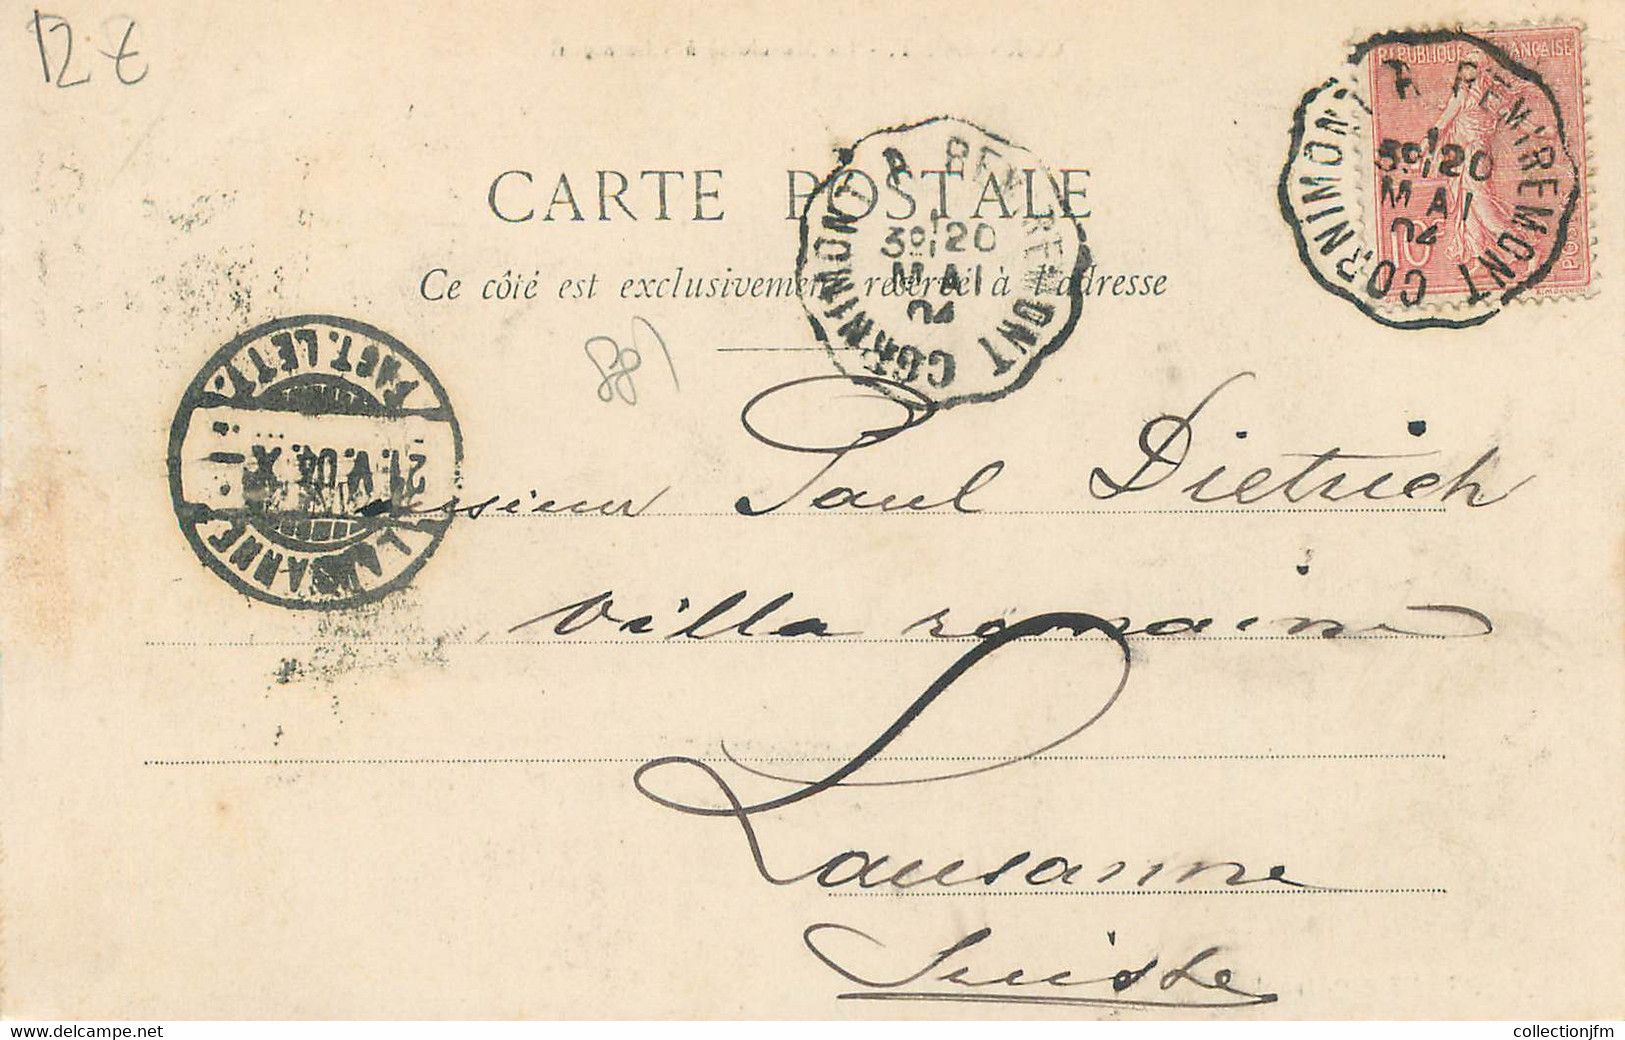 12 €
REPUBLIQUE FRANÇAISE
10
CORNIMONT A REMIREMONT
3º 20
MAI
04
CORNIMONT A REMIREMONT
3º 20
MAI
04
CARTE POSTALE
Ce côté est exclusivement réservé à l'adresse
881
LAUSANNE
21.V.04.X
FACT. LETT.
Monsieur Paul Dietrich
Villa romaine
Lausanne
Suisse
collectionjfm